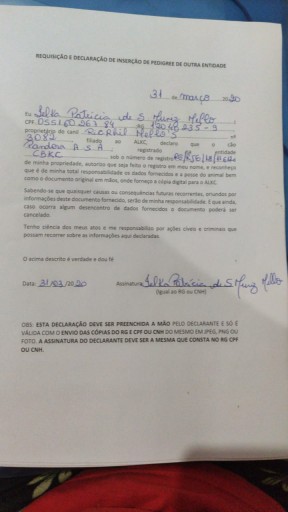 REQUISIÇÃO E DECLARAÇÃO DE INSERÇÃO DE PEDIGREE DE OUTRA ENTIDADE
31 de março de 2020
Eu Patrícia de S. Muniz Mello
CPF RG
proprietário do canil Mello's nº
3082 filiado ao ALKC, declaro que o cão
Pandora registrado entidade
CBKC sob o número de registro
de minha propriedade, autorizo que seja feito o registro em meu nome, e reconheço
que é de minha total responsabilidade os dados fornecidos e a posse do animal bem
como o documento original em mãos, onde forneço a cópia digital para o ALKC.
Sabendo-se que quaisquer causas ou consequências futuras recorrentes, oriundos por
informações deste documento fornecido, serão de minha responsabilidade. E que ainda,
caso ocorra algum desencontro de dados fornecidos o documento poderá ser
cancelado.
Tenho ciência dos meus atos e me responsabilizo por ações cíveis e criminais que
possam recorrer sobre as informações aqui declaradas.
O acima descrito é verdade e dou fé
Data: 31/03/2020 Assinatura: Patrícia de S. Muniz Mello
(igual ao RG ou CNH)
OBS: ESTA DECLARAÇÃO DEVE SER PREENCHIDA A MÃO PELO DECLARANTE E SÓ É
VÁLIDA COM O ENVIO DAS CÓPIAS DO RG E CPF OU CNH DO MESMO EM JPEG, PNG OU
FOTO. A ASSINATURA DO DECLARANTE DEVE SER A MESMA QUE CONSTA NO RG CPF
OU CNH.